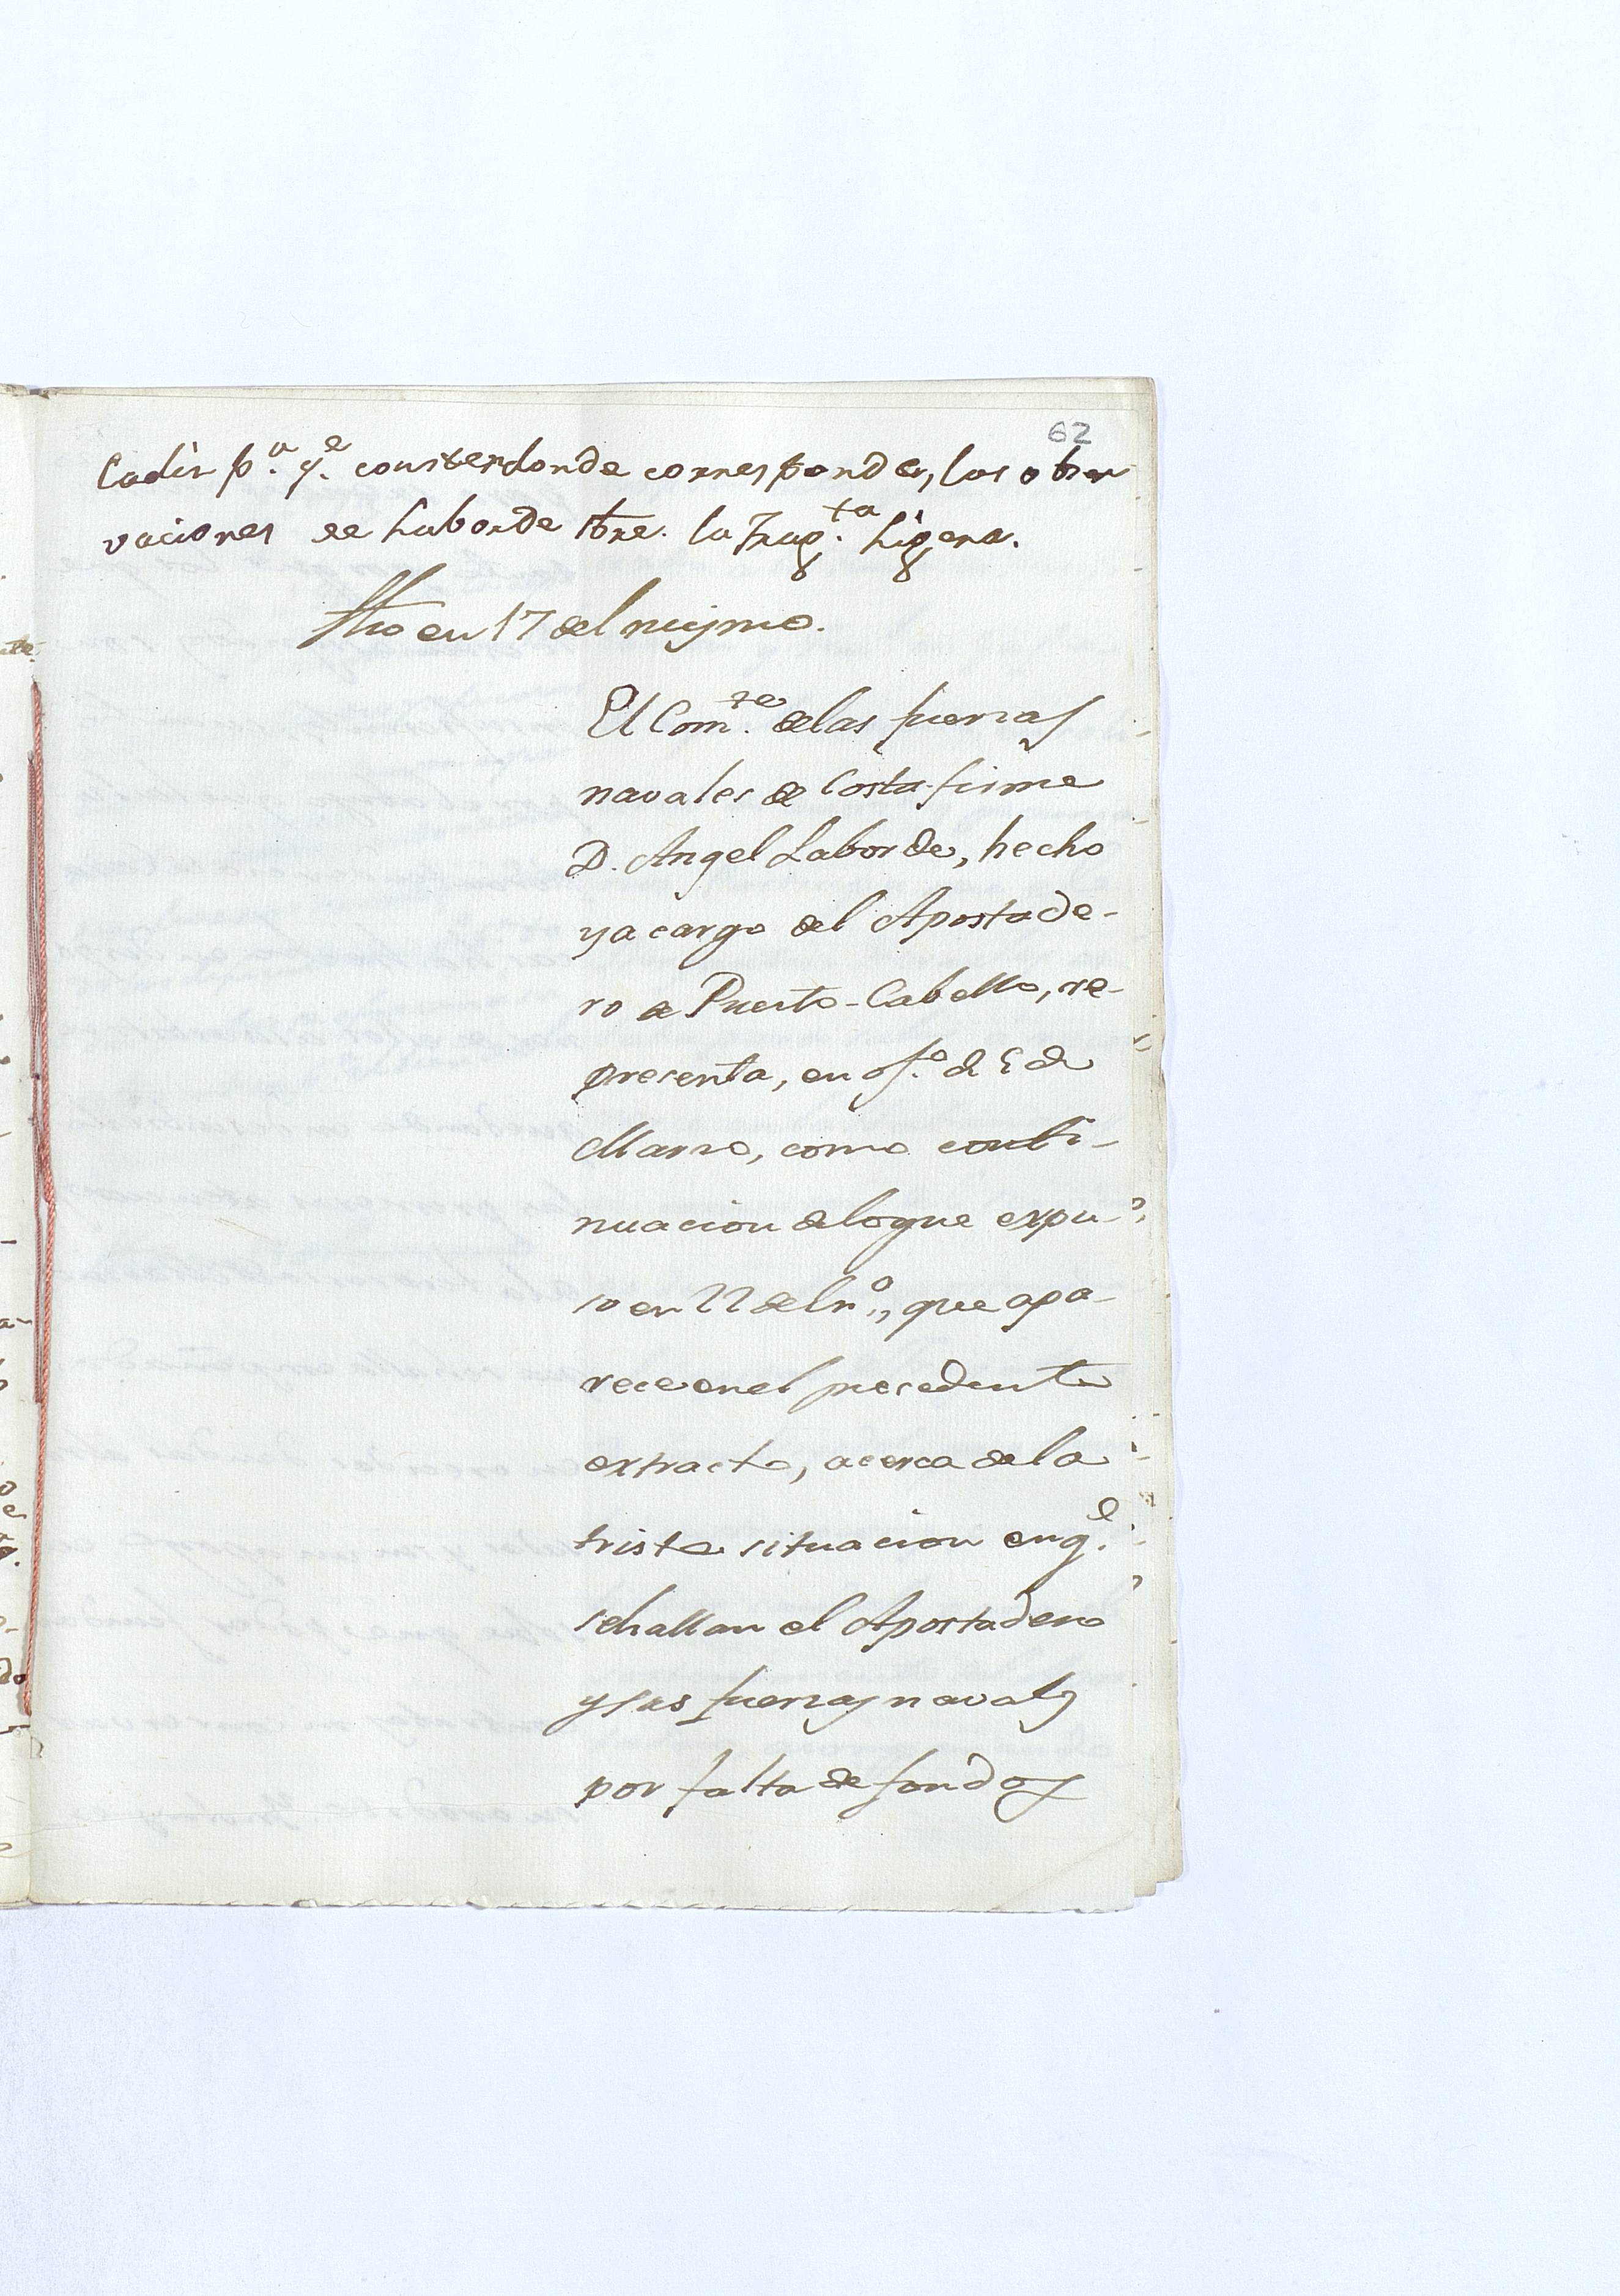 62
Cadiz p.ª q.e consten donde corresponde, las obser
vaciones de Laborde sbre. la Frag.ta Ligera.
fho en 17 del mismo.
El Com.te de las fuerzas
navales de Costa-firme
D. Angel Laborde, hecho
ya cargo del Apostade-
ro de Puerto-Cabello, re-
presenta, en of.º de 5 de
Marzo, como conti-
nuacion de lo que expu-
so en 22 del m.º, que apa-
rece en el precedente
extracto, acerca de la
triste situacion en q.e
se hallan el Apostadero
y sus fuerzas navales
por falta de fondos